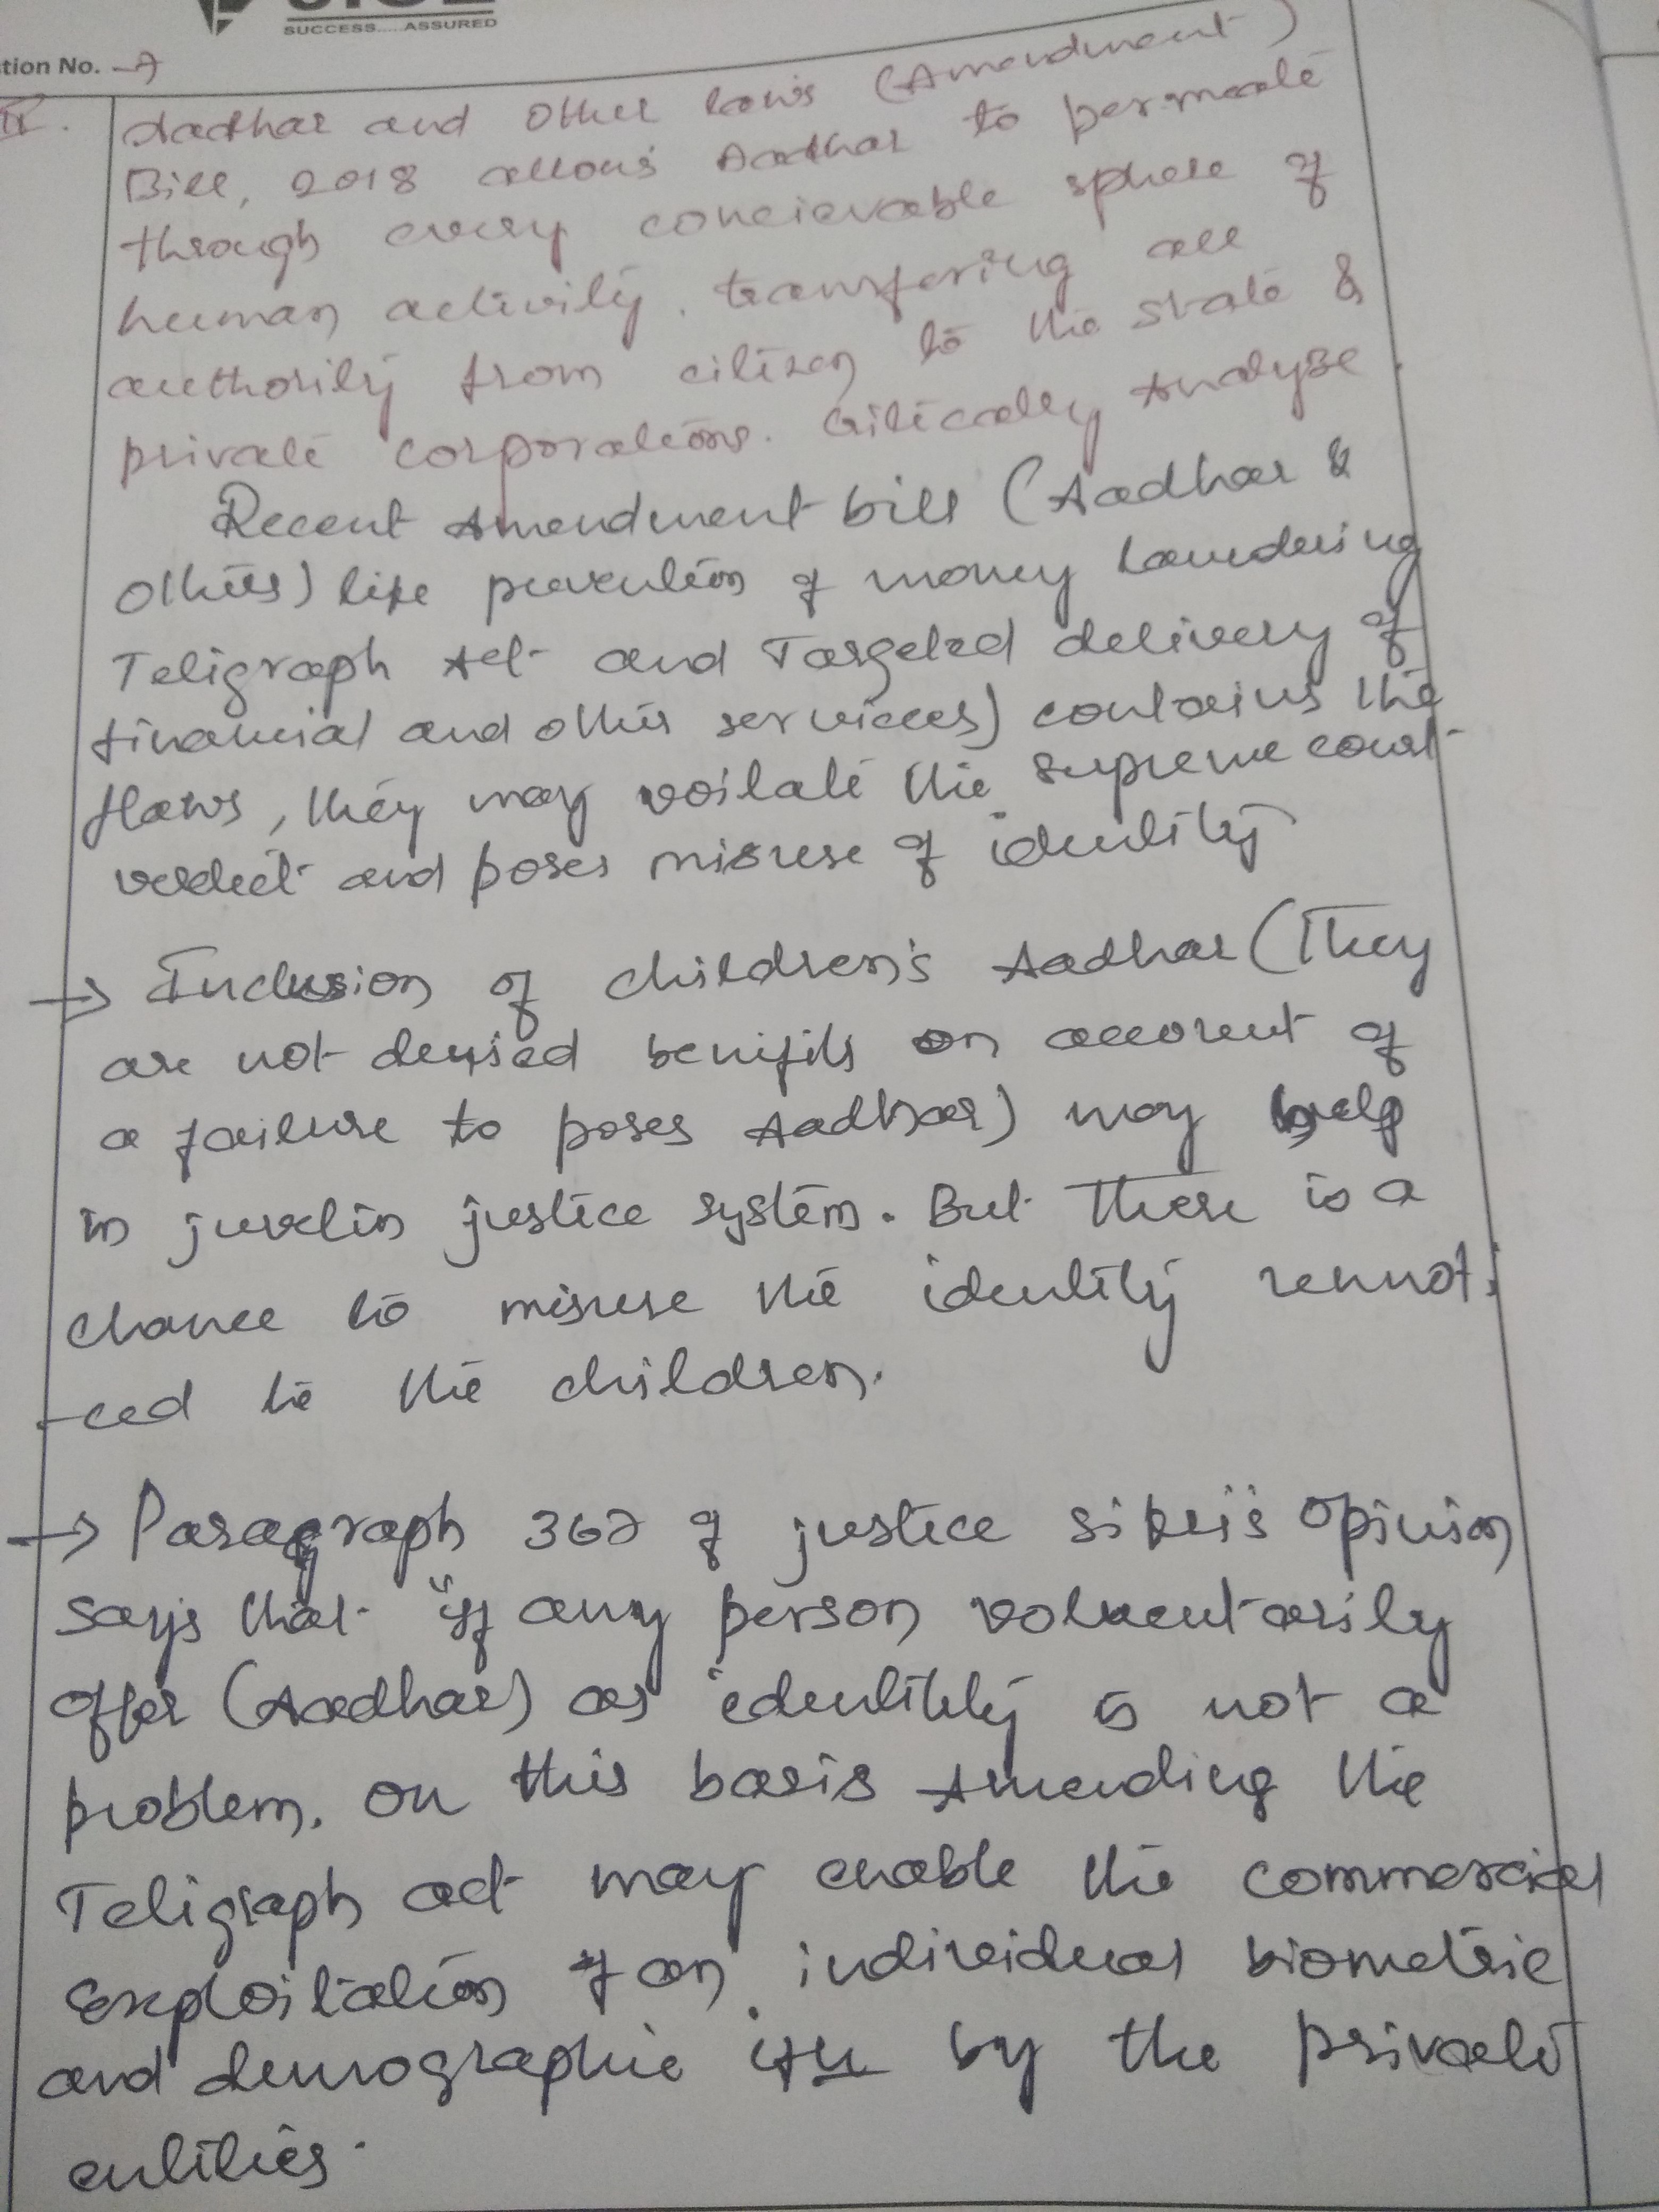 SUCCESS.....ASSURED
tion No. - 7
II. Aadhar and other laws (Amendment)
Bill, 2018 allows Aadhar to permeate
through every concievable sphere of
human activity, transfering all
authority from citizen to the state &
private corporations. Critically Analyse.
Recent Amendment bill (Aadhar &
others) like prevention of money Laundering
Teligraph Act and Targeted delivery of
financial and other services) contains the
flaws, they may voilate the supreme court
verdict and poses misuse of identity
→ Inclusion of children's Aadhar (They
are not denied benifits on account of
a failure to poses Aadhar) may help
in juvelin justice system. But there is a
chance to misuse the identity unnoti
-ced to the children.
→ Paragraph 367 of justice sikri's opinion
says that "if any person voluentarily
offer (Aadhar) as identitity is not a
problem. on this basis Amending the
Teligraph act may enable the commercial
exploitation of an individual biometric
and demographic by the private
entities.